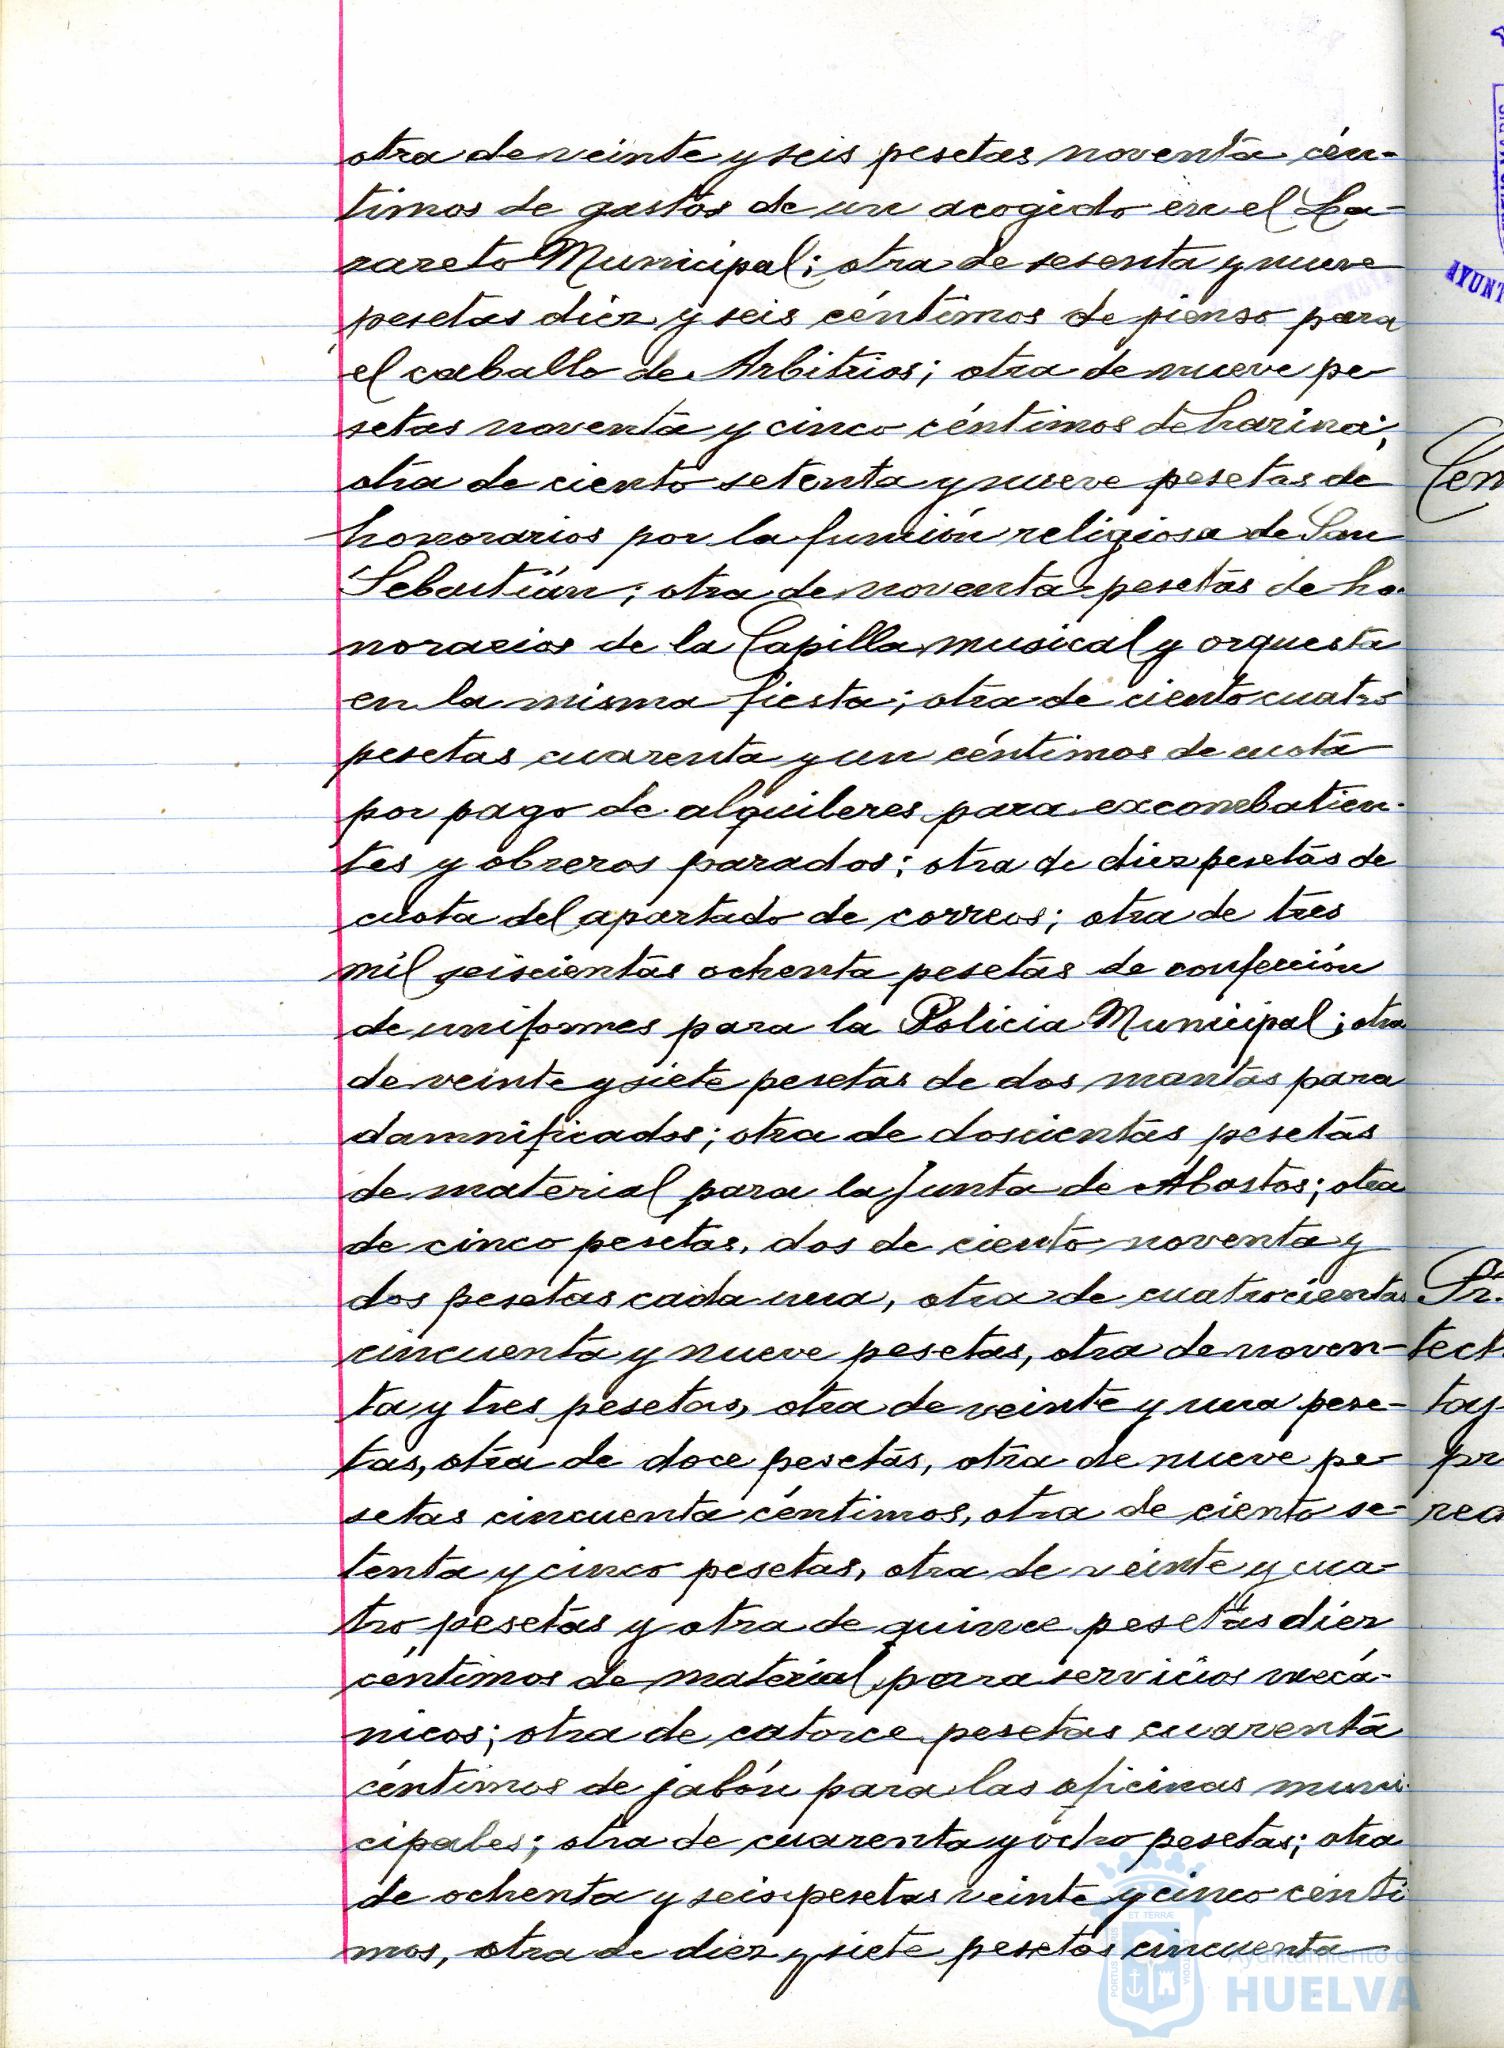 otra de veinte y seis pesetas noventa cén-
timos de gastos de un acogido en el La-
zareto Municipal; otra de sesenta y nueve
pesetas diez y seis céntimos de pienso para
el caballo de Arbitrios; otra de nueve pe
setas noventa y cinco céntimos de harina;
otra de ciento setenta y nueve pesetas de
honorarios por la función religiosa de San
Sebastián; otra de noventa pesetas de ho-
norarios de la Capilla musical y orquesta
en la misma fiesta; otra de ciento cuatro
pesetas cuarenta y un céntimos de cuota
por pago de alquileres para excombatien-
tes y obreros parados; otra de diez pesetas de
cuota del apartado de correos; otra de tres
mil seiscientas ochenta pesetas de confección
de uniformes para la Policia Municipal; otra
de veinte y siete pesetas de dos mantas para
damnificados; otra de doscientas pesetas
de material para la Junta de Abastos; otra
de cinco pesetas, dos de ciento noventa y
dos pesetas cada una, otra de cuatrocientas
cincuenta y nueve pesetas, otra de noven-
ta y tres pesetas, otra de veinte y una pese-
tas, otra de doce pesetas, otra de nueve pe-
setas cincuenta céntimos, otra de ciento se-
tenta y cinco pesetas, otra de veinte y cua-
tro pesetas y otra de quince pesetas diez
céntimos de material para servicios mecá-
nicos; otra de catorce pesetas cuarenta
céntimos de jabón para las oficinas muni-
cipales; otra de cuarenta y ocho pesetas; otra
de ochenta y seis pesetas veinte y cinco cénti
mos, otra de diez y siete pesetas cincuenta
Ayuntamiento de
HUELVA